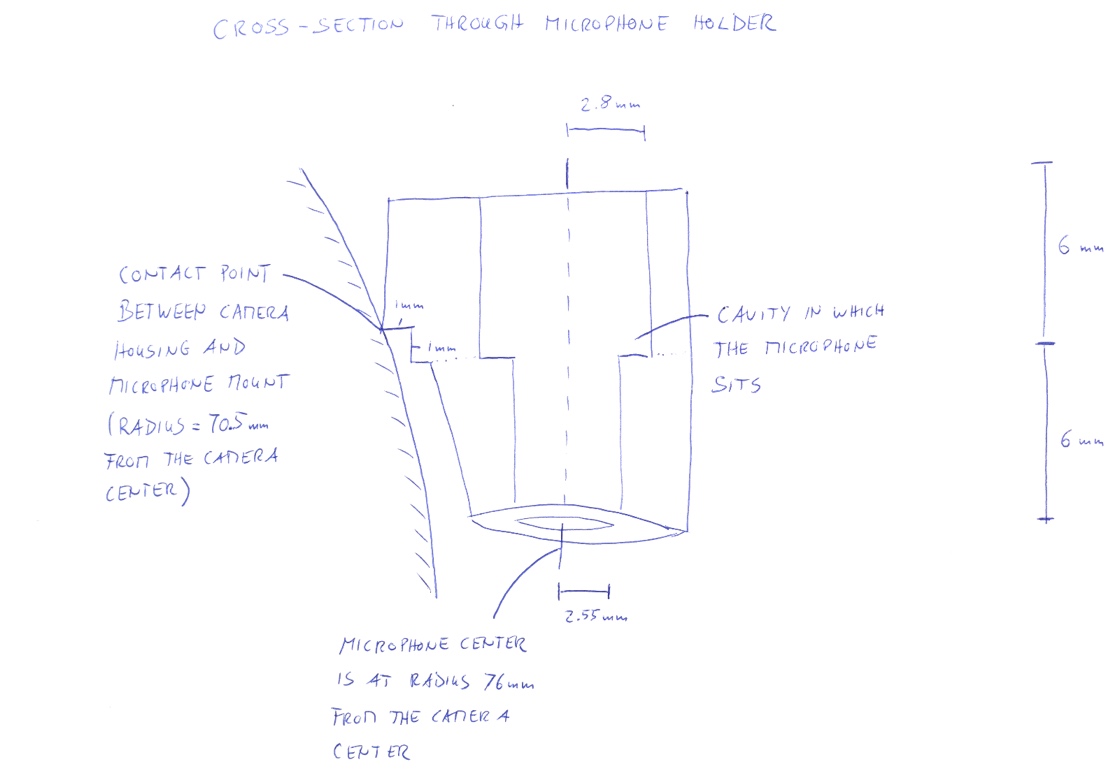 CROSS-SECTION THROUGH MICROPHONE HOLDER
2.8mm
6 mm
CONTACT POINT
BETWEEN CAMERA
HOUSING AND
MICROPHONE MOUNT
(RADIUS = 70.5mm
FROM THE CAMERA
CENTER)
1mm
1mm
CAVITY IN WHICH
THE MICROPHONE
SITS
6 mm
2.55mm
MICROPHONE CENTER
IS AT RADIUS 76mm
FROM THE CAMERA
CENTER